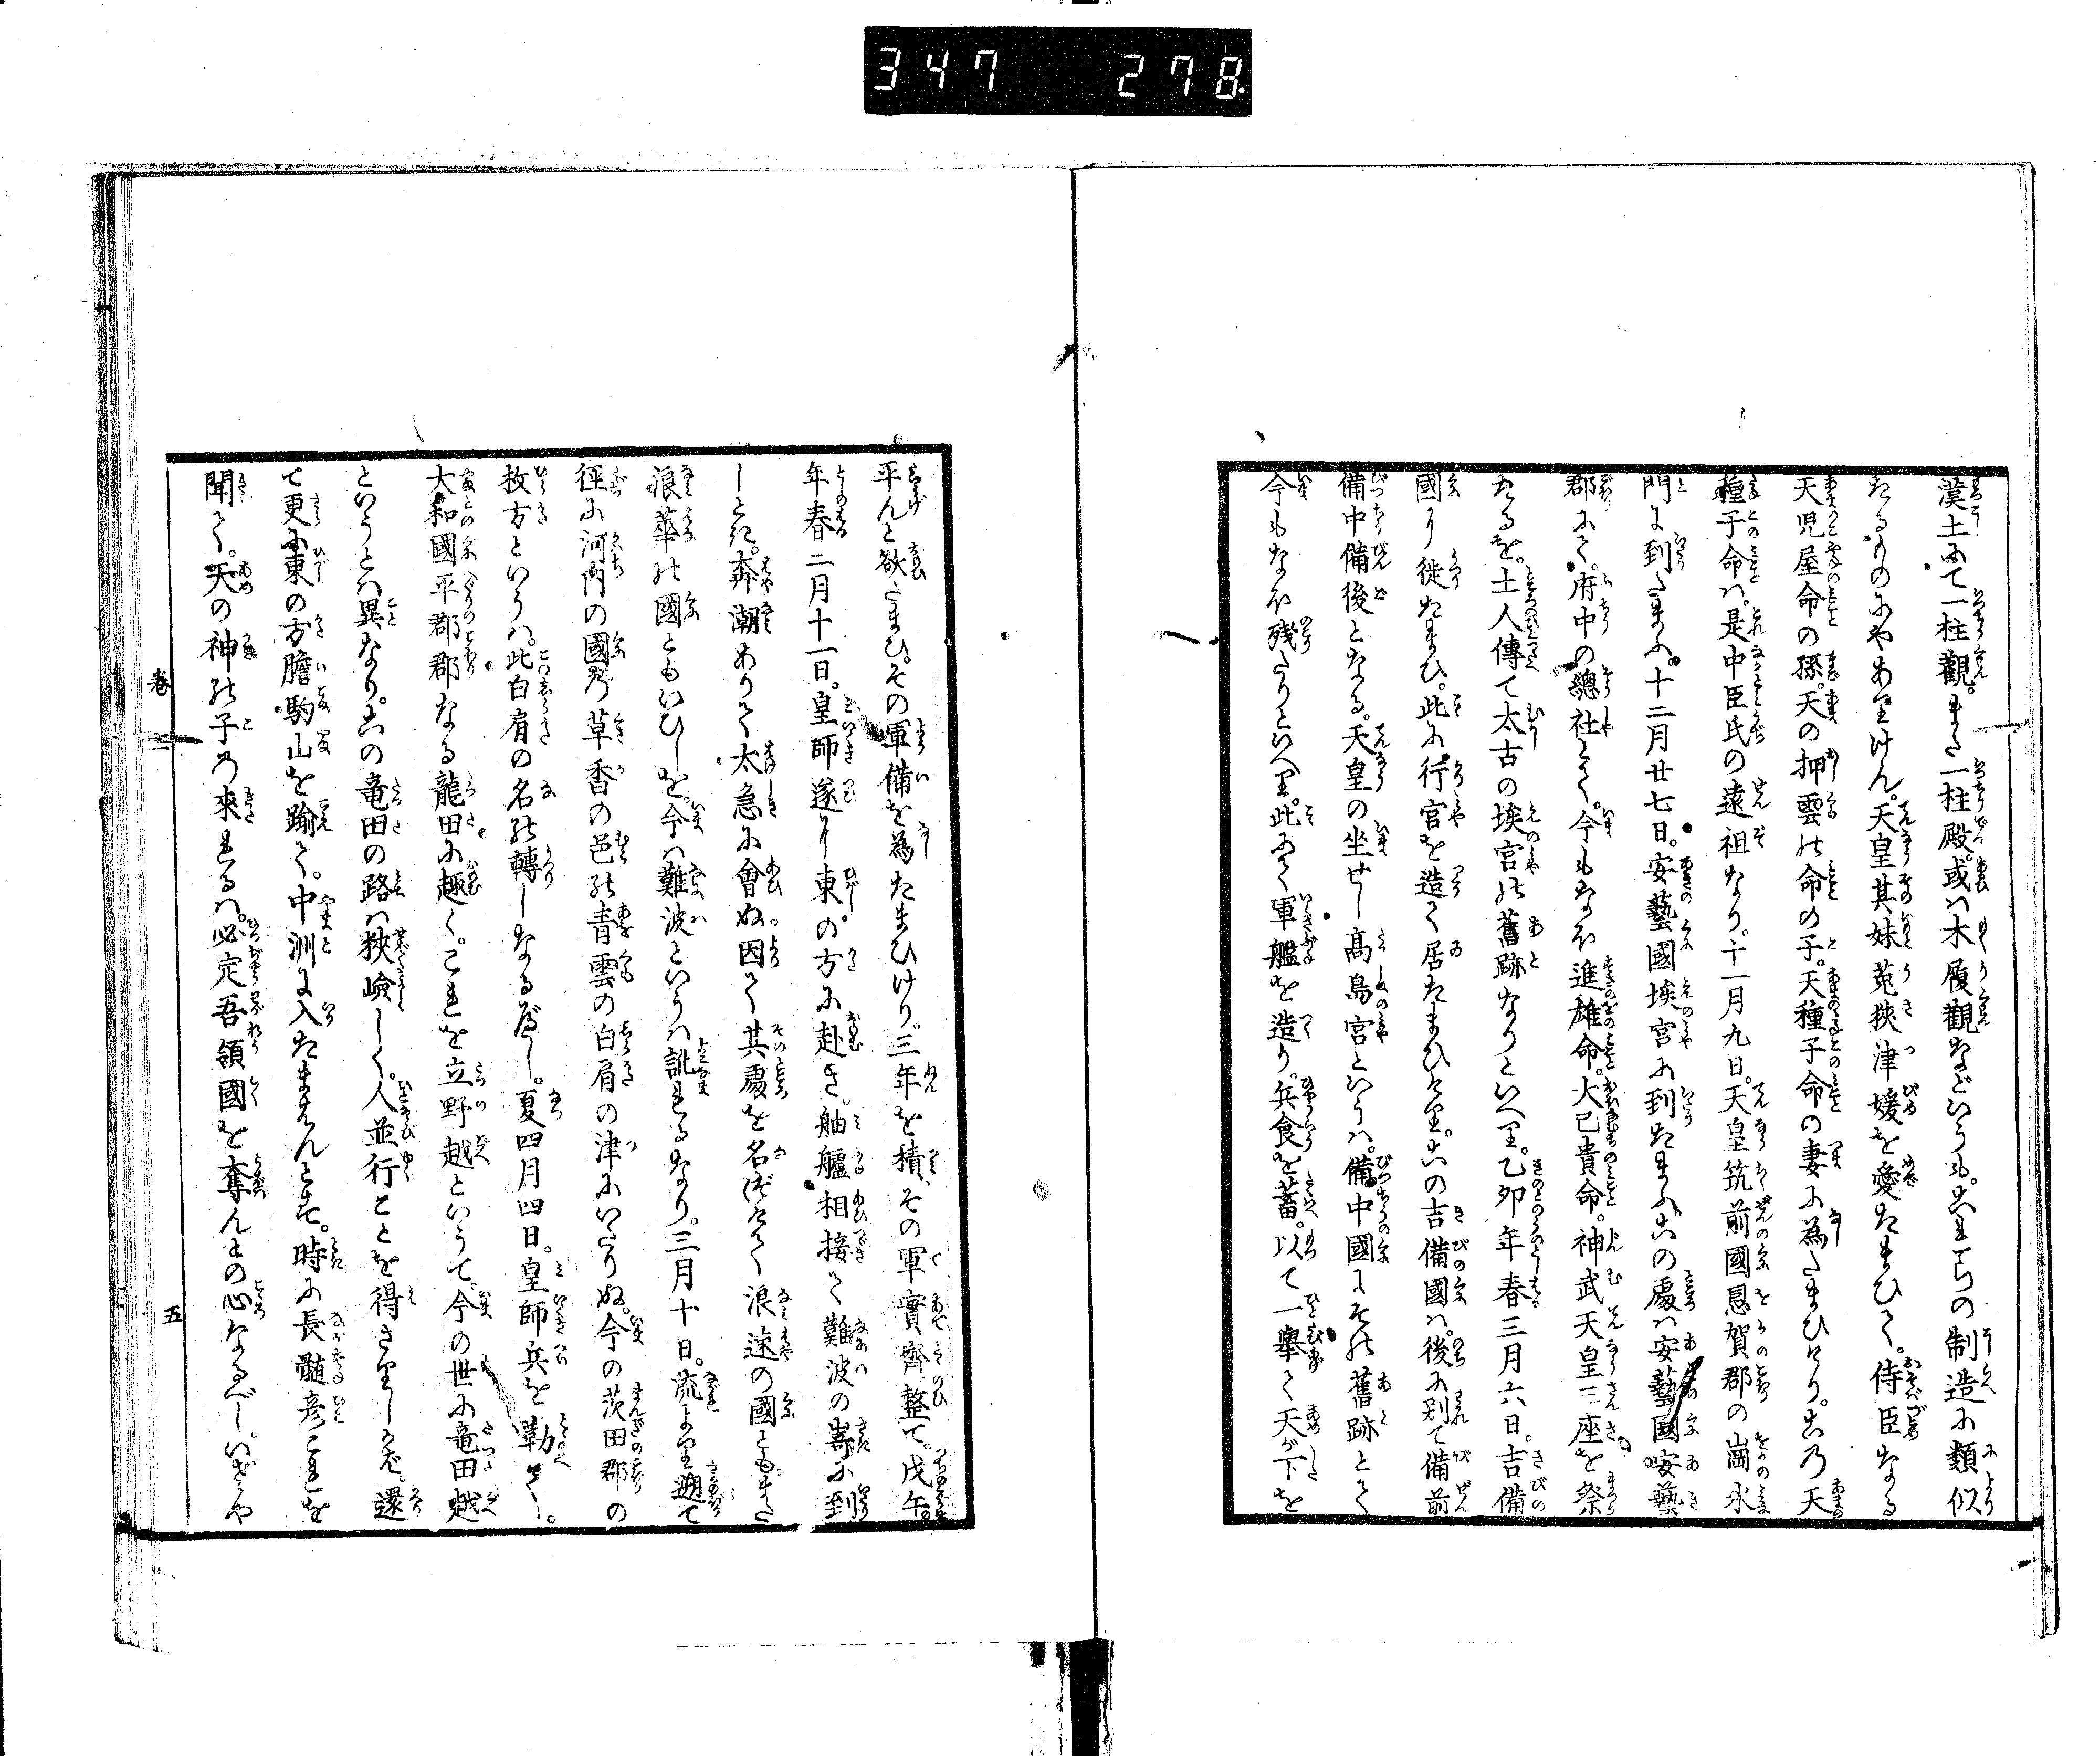 347 278
漢土にて一柱觀。また一柱殿。或ハ木履觀などいうも。これらの制造に類似
たるものにやありけん。天皇其妹菟狹津媛を愛たまひて。侍臣なる
天児屋命の孫。天の押雲の命の子。天種子命の妻に為たまひけり。この天
種子命ハ。是中臣氏の遠祖なり。十一月九日。天皇筑前國恩賀郡の崗水
門に到たまふ。十二月廿七日。安藝國埃宮に到たまふ。この處ハ安藝國安藝
郡にて。府中の總社とて。今もなほ進雄命。大己貴命。神武天皇三座を祭
たるを。土人傳て太古の埃宮の舊跡なりといへり。乙卯年春三月六日。吉備
國に徙たまひ。此に行宮を造て居たまひけり。この吉備國ハ。後に別て備前
備中備後となる。天皇の坐せし髙島宮といふハ。備中國にその舊跡とて
今もなほ殘たりといへり。此にて軍艦を造り。兵食を蓄。以て一擧て天が下を
平んと欲たまひ。その軍備を為たまひけり。三年を積。その軍實齊整て。戊午
年春二月十一日。皇師遂に東の方に赴き。舳艫相接て難波の崎に到
しとき。奔潮ありて太急に會ぬ。因て其處を名づけて浪速の國ともまた
浪華の國ともいひしを。今ハ難波といふハ訛れるなり。三月十日。流より遡て
徑に河内の國の草香の邑の青雲の白肩の津にいたりぬ。今の茨田郡の
枚方といふハ。此白肩の名の轉しなるべし。夏四月四日。皇師兵を勒て。
大和國平郡郡なる龍田に趣く。これを立野越といふて。今の世に竜田越
といふとハ異なり。この竜田の路ハ狹嶮しく。人並行ことを得ざりしかバ。還
て更に東の方膽駒山を踰て。中洲に入たまはんとす。時に長髄彦これを
聞て。天の神の子の來れるハ。必定吾領國を奪んとの心なるべし。いざや
卷
五